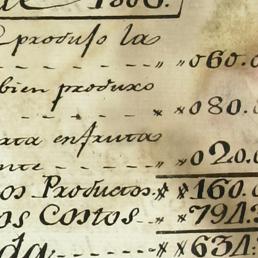 1806.
produso la
" " 060.0
bien produxo
" " 080.0
enfruta
nte - - - - " " 020.0
os Productos " " 160.0
os Costos - - " " 794.
da - - - - - " " 634.